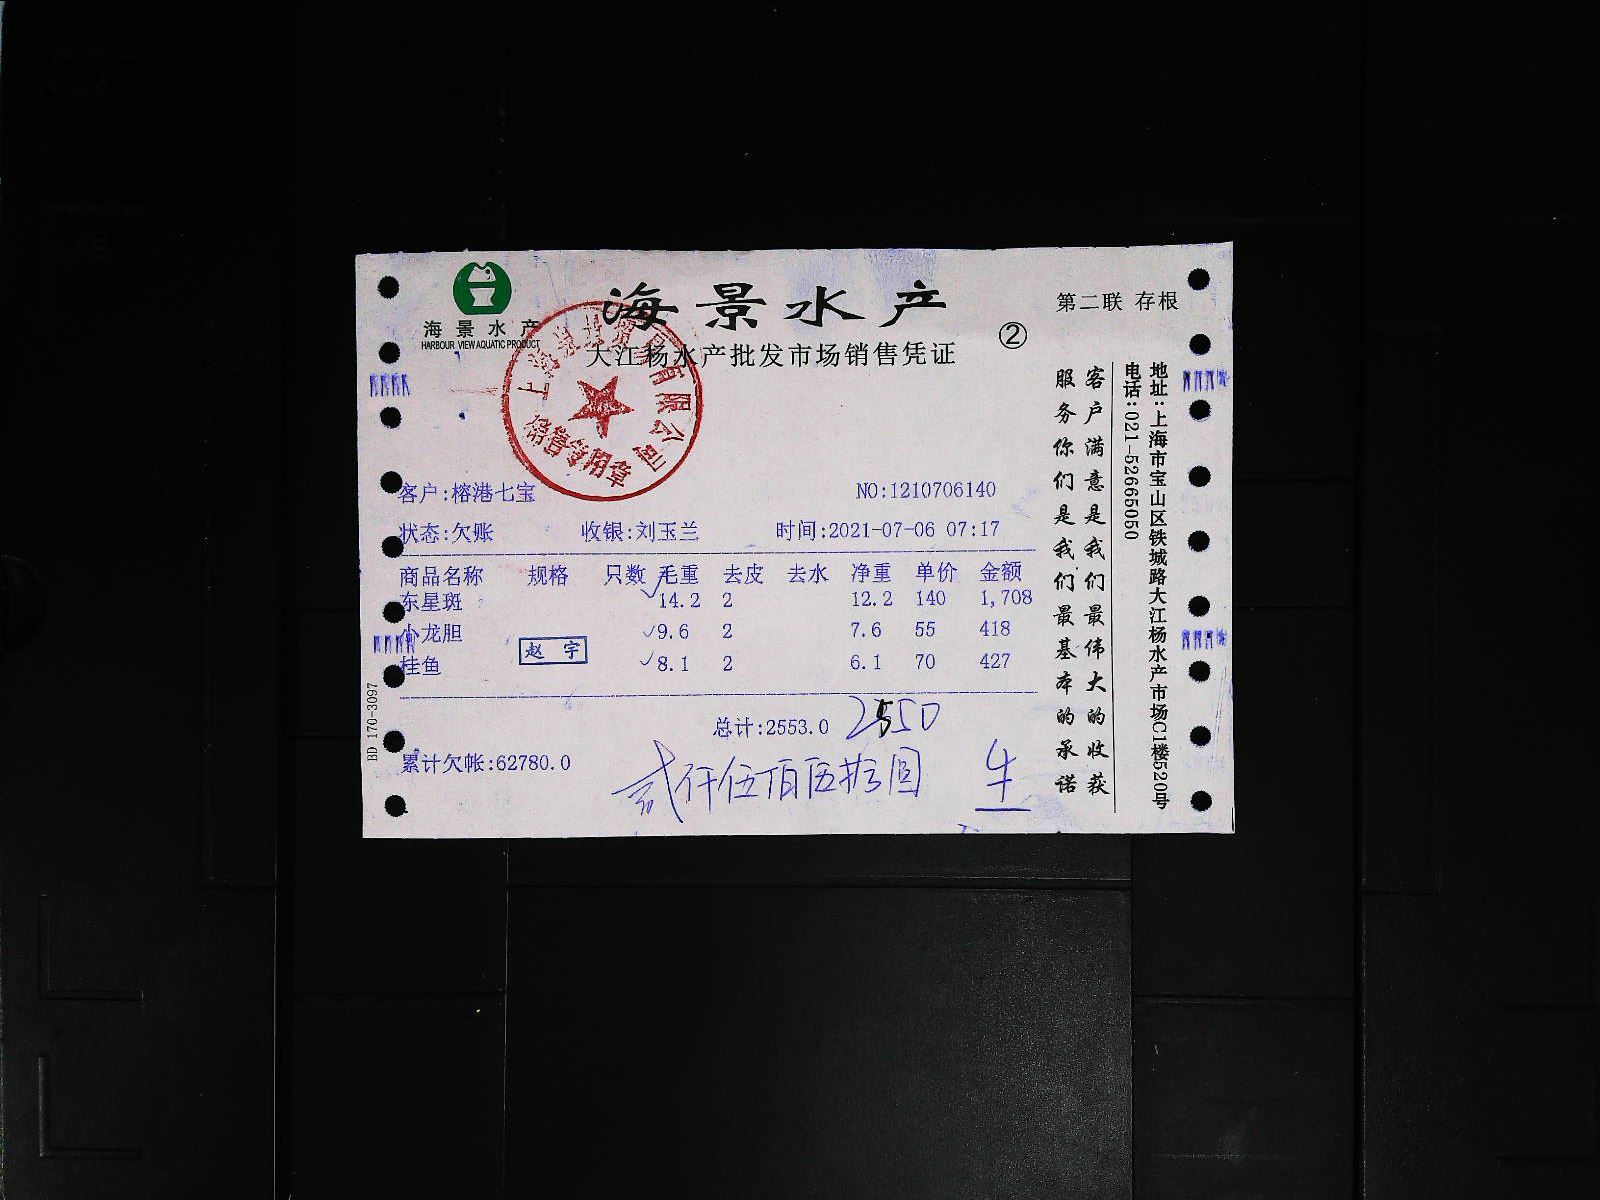 海景水产
HARBOUR VIEW AQUATIC PRODUCT
海景水产
大江杨水产批发市场销售凭证
②
第二联 存根
上海景益贸易有限公司
销售专用章
客户:榕港七宝
NO:1210706140
状态:欠账
收银:刘玉兰
时间:2021-07-06 07:17
商品名称 规格 只数 毛重 去皮 去水 净重 单价 金额
东星斑 14.2 2 12.2 140 1,708
小龙胆 9.6 2 7.6 55 418
桂鱼 8.1 2 6.1 70 427
赵宇
总计:2553.0
2550
累计欠帐:62780.0
贰仟伍佰伍拾圆
BD 170-3097
客户满意是我们最伟大的收获
服务你们是我们最基本的承诺
地址:上海市宝山区铁城路大江杨水产市场C1楼520号
电话:021-52665050